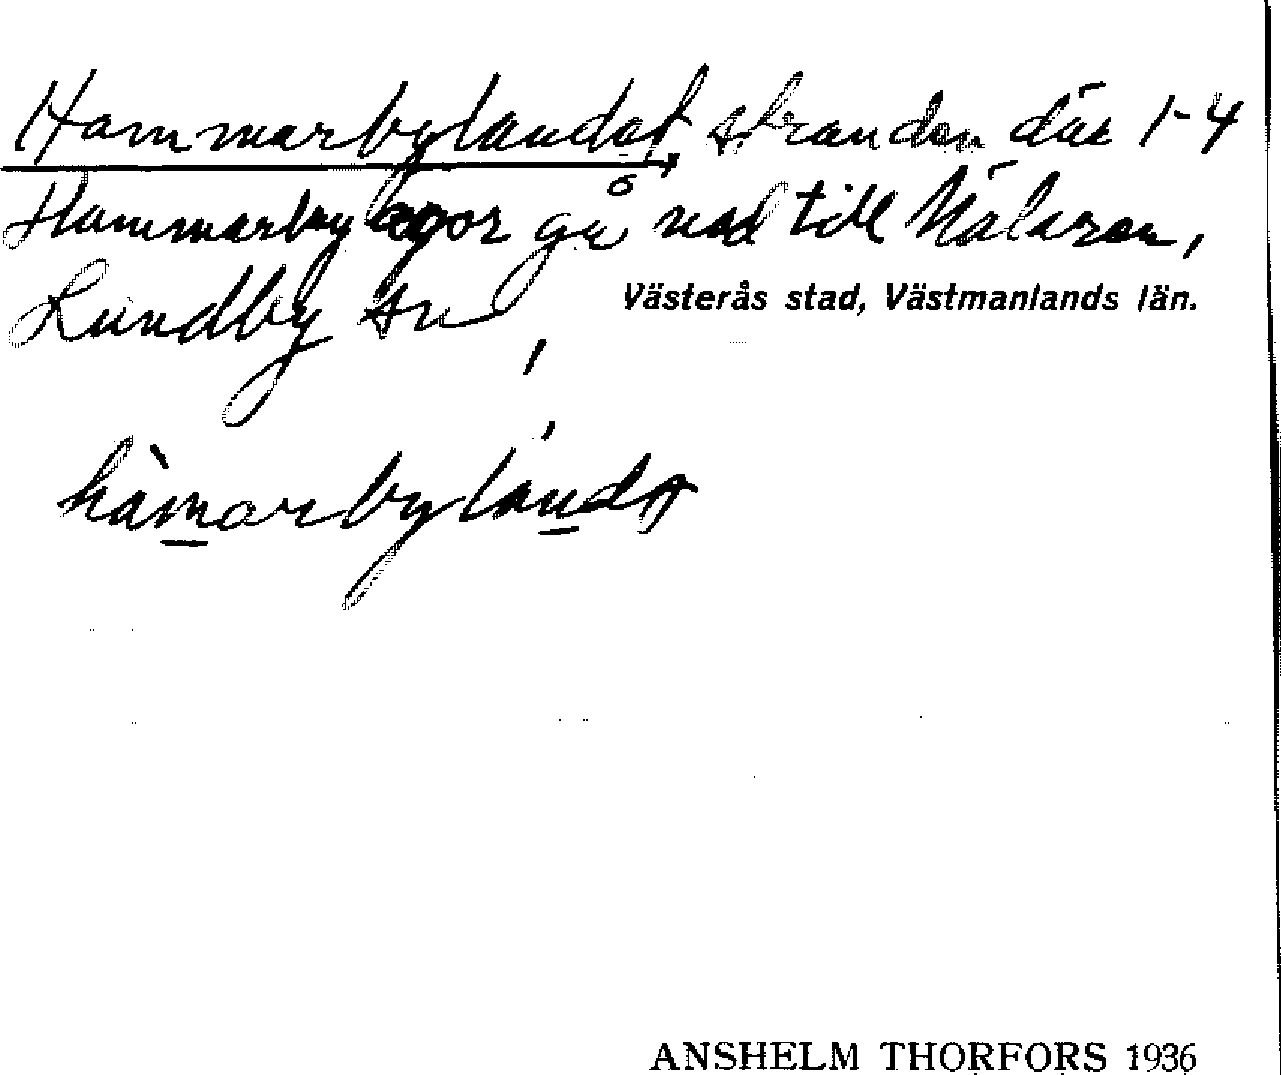 Hammarbylandet stranden där 1-4
Hammarby ägor gå ned till Mälaren,
Lundby sn
Västerås stad, Västmanlands län.
hàmarbyland
ANSHELM THORFORS 1936